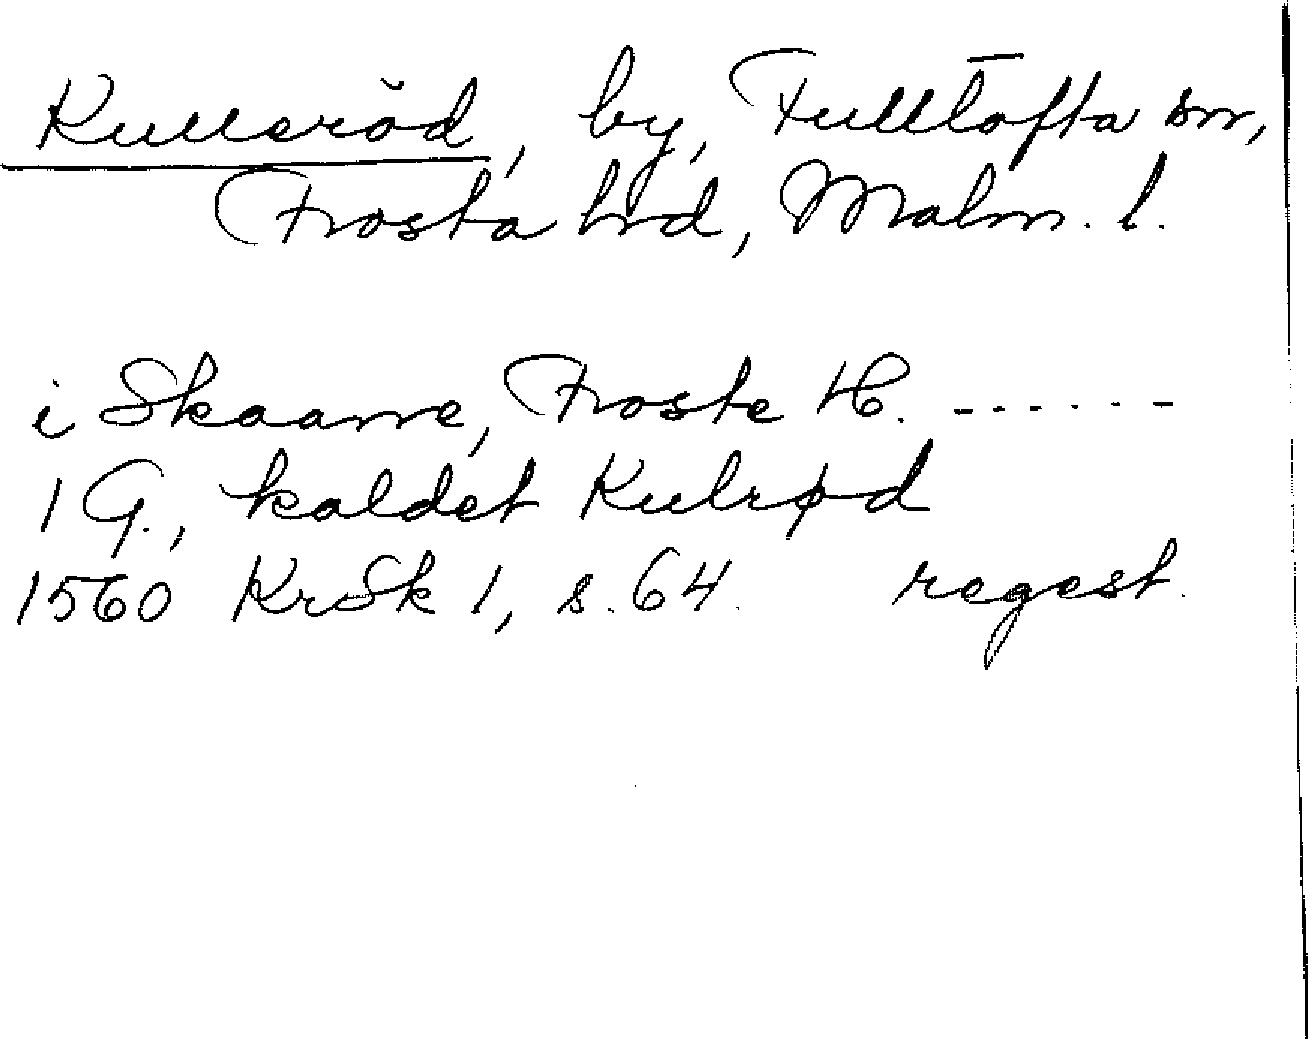 Kulleröd, by, Fulltofta sn,
Frosta hd, Malm. l.
i Skaane, Froste H. ------
1 G., kaldet Kulrød
1560 KrSk 1, s. 64. regest.